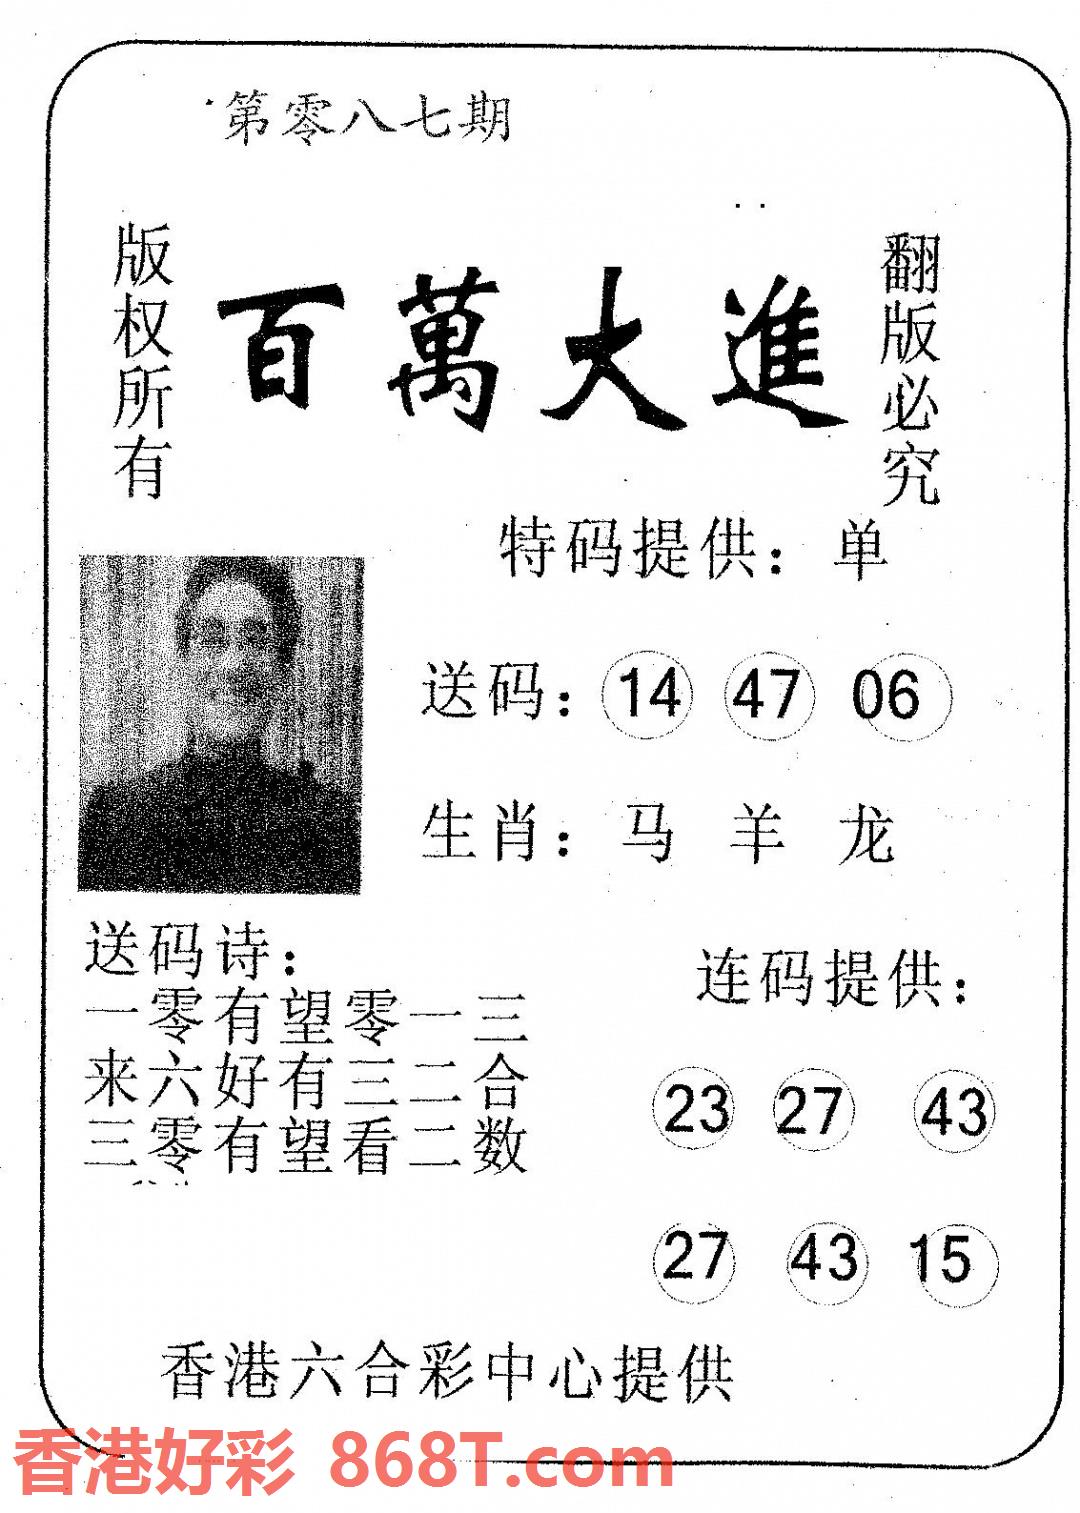 第零八七期
版权所有
百萬大進
翻版必究
特码提供：单
送码：14 47 06
生肖：马 羊 龙
送码诗：
一零有望零一三
来六好有三二合
三零有望看二数
连码提供：
23 27 43
27 43 15
香港六合彩中心提供
香港好彩 868T.com